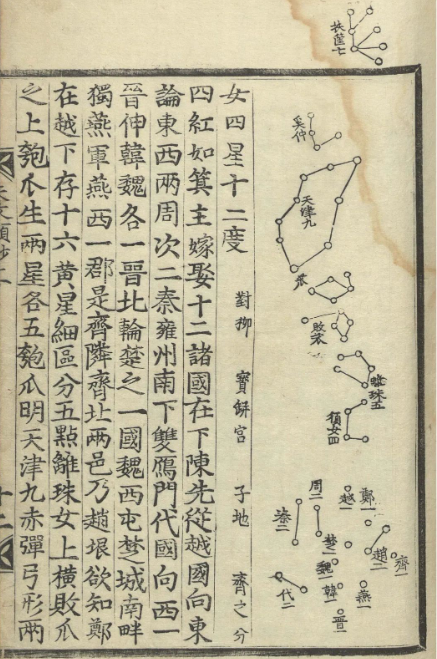 扶筐七
奚仲
天津九
瓜
敗瓜
離珠五
須女四
鄭一
越一
周二
秦二
齊一
趙二
楚一
魏一
韓一
燕一
代二
晉一
女四星十二度 對柳 寶缾宮 子地 齊之分
四紅如箕主嫁娶十二諸國在下陳先從越國向東
論東西兩周次二秦雍州南下雙鴈門代國向西一
晉伸韓魏各一晉北輪楚之一國魏西屯楚城南畔
獨燕軍燕西一郡是齊隣齊北兩邑乃趙垠欲知鄭
在越下存十六黄星細區分五點離珠女上横敗瓜
之上匏瓜生兩星各五匏瓜明天津九赤彈弓形兩
十二